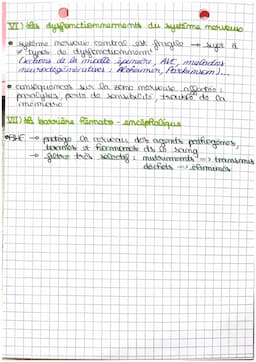 VI) Les dysfonctionnements du système nerveux
• système nerveux central est fragile → sujet à
≠ types de dysfonctionnement
(lésions de la moelle épinière, AVC, maladies
neurodégénératives : Alzheimer, Parkinson)...
• conséquences sur la zone nerveuse affectée :
paralysies, perte de sensibilité, trouble de la
mémoire
VII) La barrière hémato-encéphalique
BHE → protège le cerveau des agents pathogènes,
toxines et hormones ds le sang
→ filtre très sélectif : nutriments → transmis
déchets → éliminés